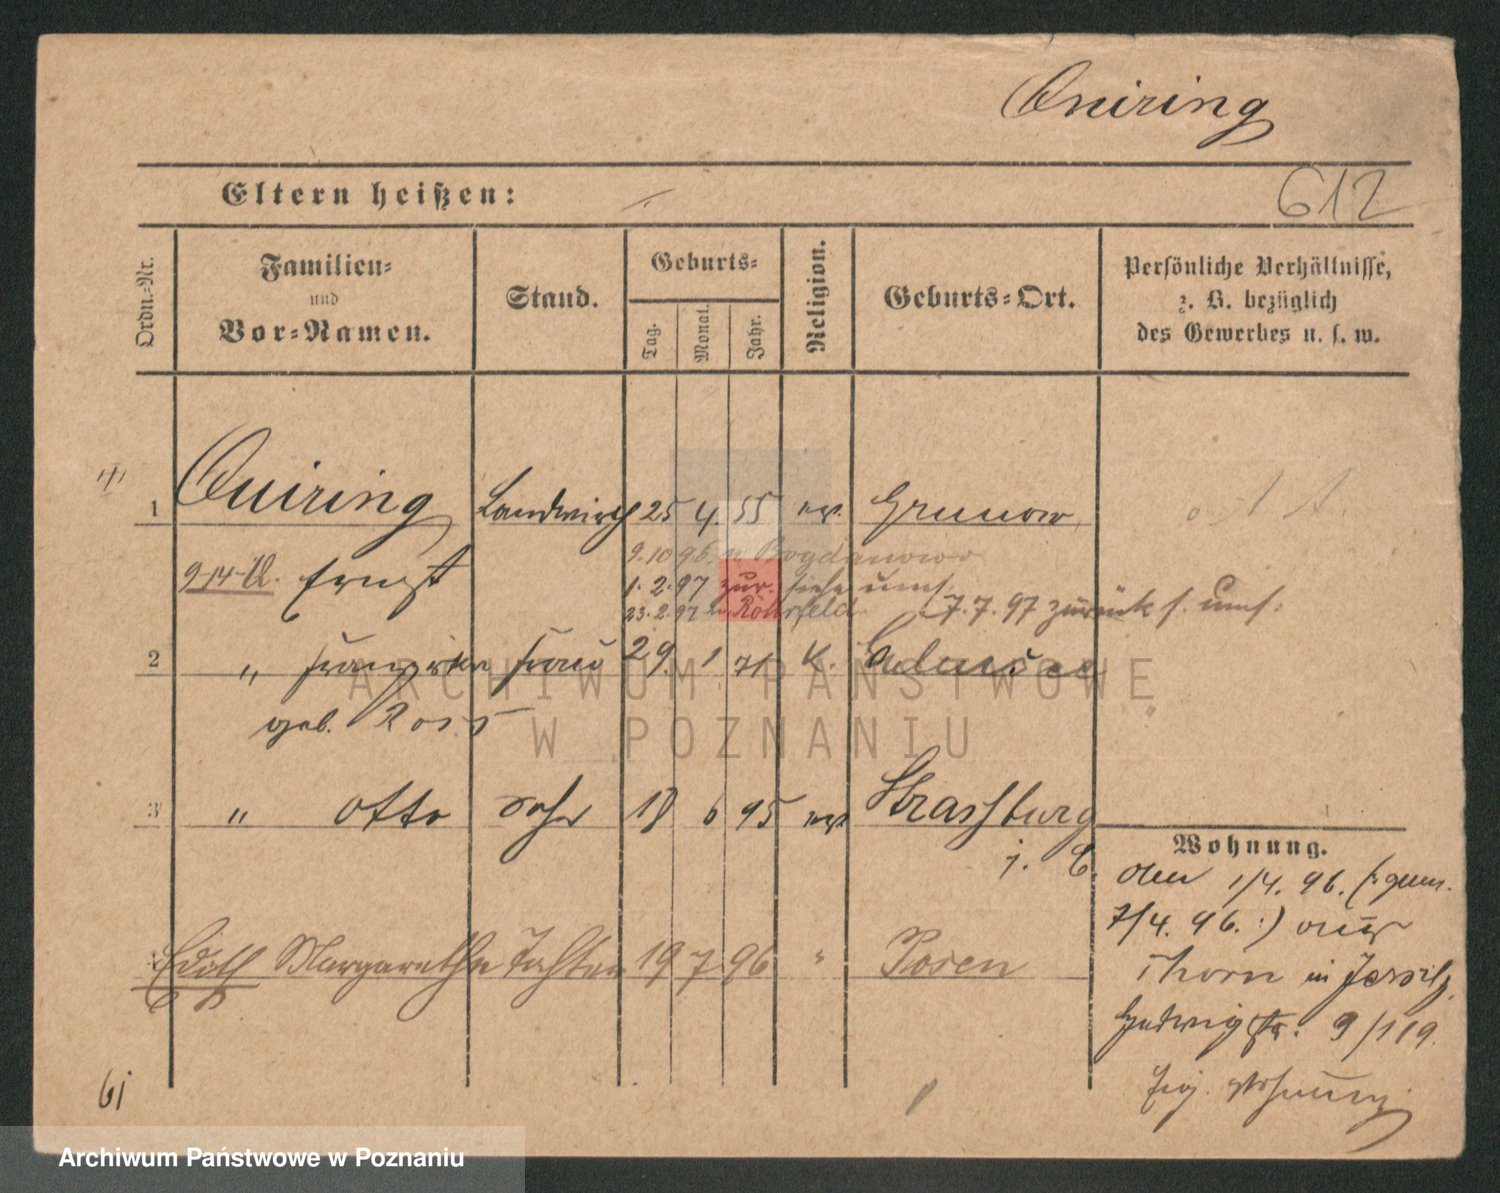 Quiring
Eltern heißen:
612
Ordn.-Nr.
Familien-
und
Vor-Namen.
Stand.
Geburts-
Tag.
Monat.
Jahr.
Religion.
Geburts-Ort.
Persönliche Verhältnisse,
z. B. bezüglich
des Gewerbes u. s. w.
1 Quiring Landwirth 25 4 55 ev. Grunow
9.10 96. n. Bogdanowo
Ernst
1. 2. 97 zur. siehe ums.
23. 2. 97 n. Röhrfeld 7. 7. 97 zurück s. ums.
2 " Frau 29. 1 71 K.
geb.
ARCHIWUM PAŃSTWOWE
W POZNANIU
3 " Otto Sohn 18 6 95 ev. Strassburg
i. E.
Wohnung.
den 1/4. 96. (: gem.
7/4. 96. :) aus
Edith Margarethe Tochter 19 7 96 " Posen
Thorn in Jersitz,
Hedwigstr. 9/119.
61
Wohnung
Archiwum Państwowe w Poznaniu